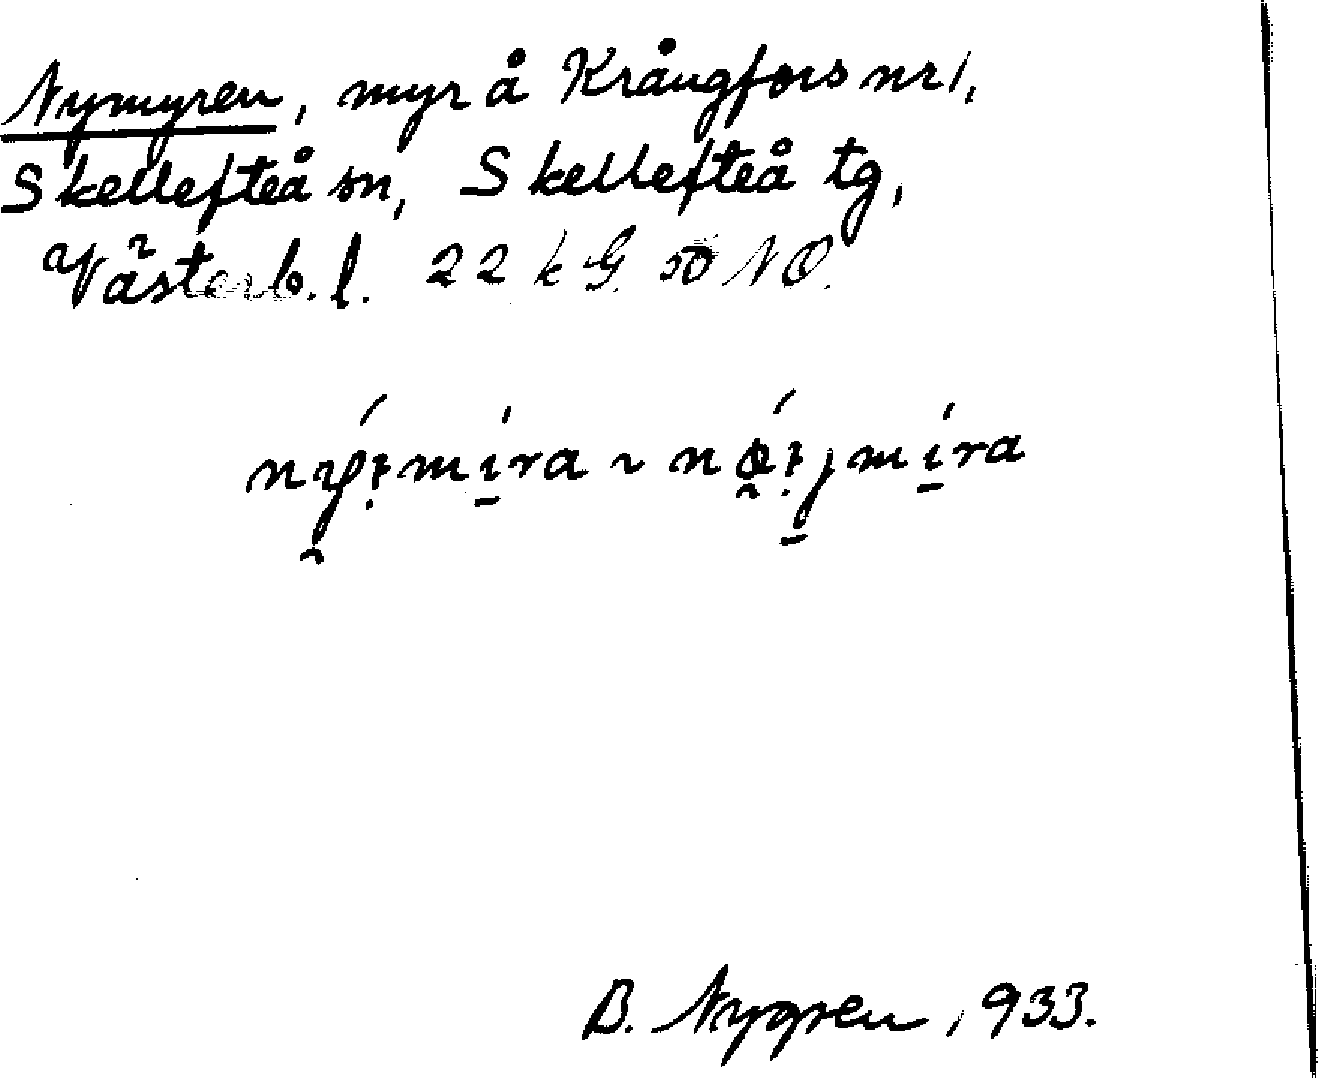 Nymyren, myr å Krångfors nr 1,
Skellefteå sn, Skellefteå tg,
Västerb. l. 22 k G. 50 NO.
B. Nygren, 1933.